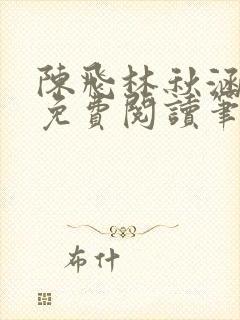 陳飛林秋涵
免費閱讀筆
布什